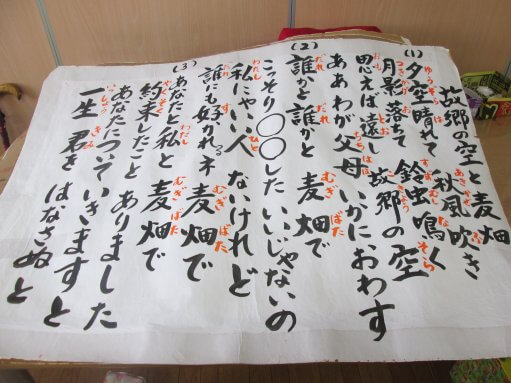 故郷の空と麦畑
(1)
夕空晴れて 秋風吹き
月影落ちて 鈴虫鳴く
思えば遠し 故郷の空
ああ わが父母 いかにおわす
(2)
誰かと 誰かと 麦畑で
こっそり〇〇した いいじゃないの
私にゃいい人 ないけれど
誰にも好かれるネ 麦畑で
(3)
あなたと私と 麦畑で
約束したこと ありました
あなたについていきますと
一生 君を はなさぬと